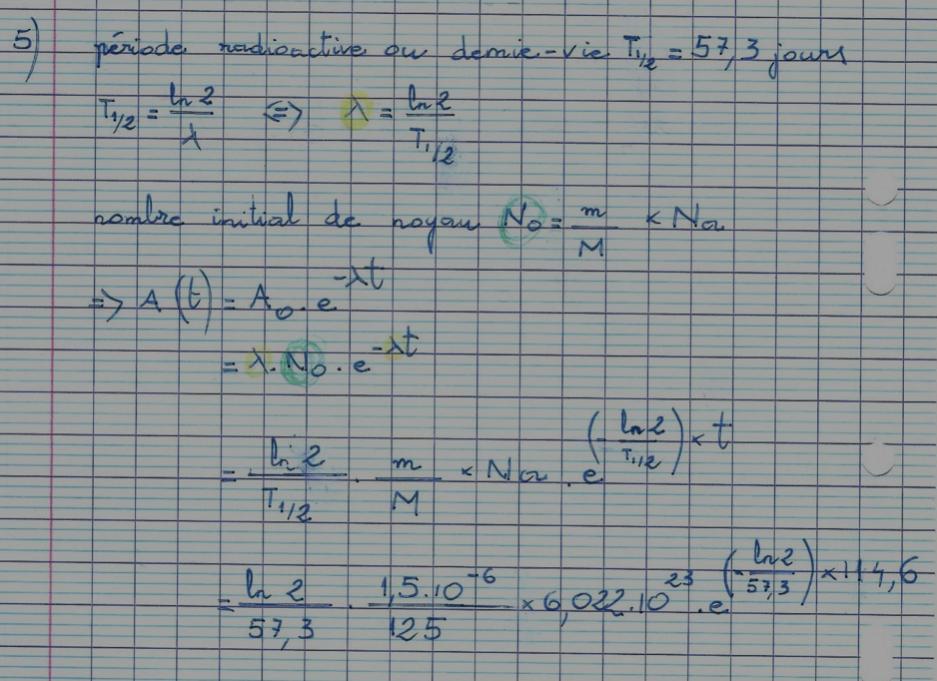 5) période radioactive ou demie-vie T1/2 = 57,3 jours
T1/2 = ln 2 / λ <=> λ = ln 2 / T1/2
nombre initial de noyau N0 = m / M × Na
=> A (t) = A0 . e^-λt
= λ . N0 . e^-λt
= ln 2 / T1/2 . m / M × Na . e^(- ln 2 / T1/2) × t
= ln 2 / 57,3 . 1,5.10^-6 / 125 × 6,022.10^23 . e^(- ln 2 / 57,3) × 114,6